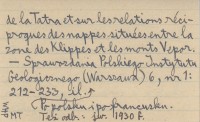 de la Tatra et sur les relations réci-
proques des nappes situées entre la
zone des Klippes et les monts Vepor.
— Sprawozdania Polskiego Instytutu
Geologicznego (Warszawa) 6, nr 1:
212-233, il.
Po polsku i po francusku.
MT Też odb. 1930 r.